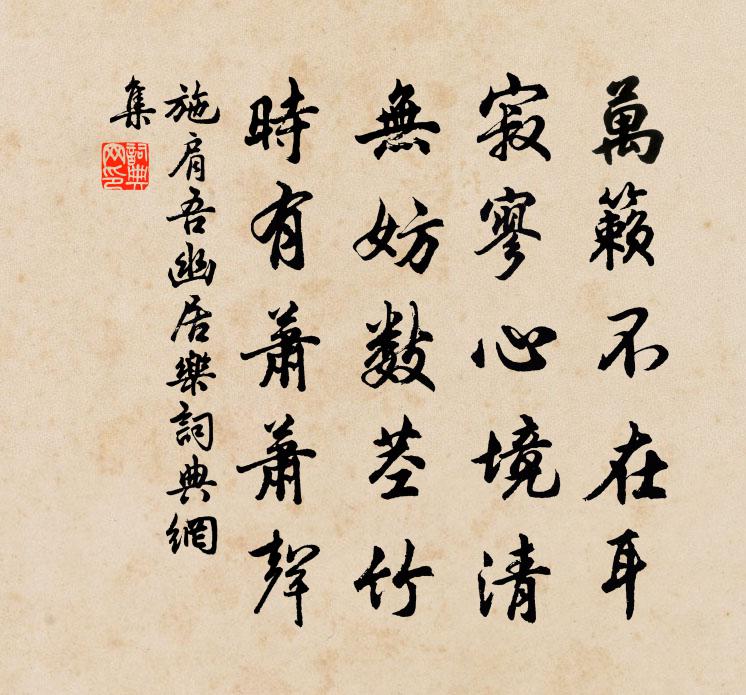 萬籟不在耳
寂寥心境清
無妨數莖竹
時有蕭蕭聲
施肩吾幽居樂詞典網
集
詞典
网印